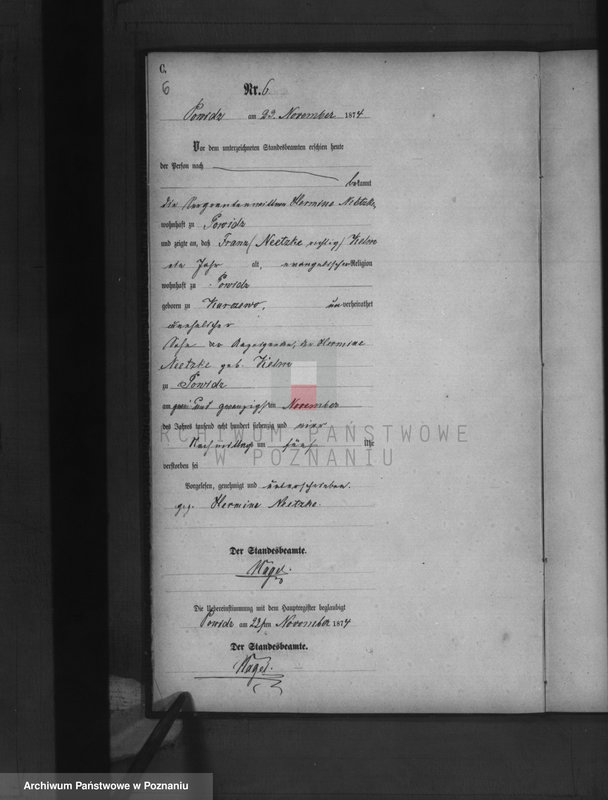 C.
6 Nr. 6.
Powidz am 23. November 1874
Vor dem unterzeichneten Standesbeamten erschien heute
der Person nach
bekannt
die Hermine Neetzke,
wohnhaft zu Powidz
und zeigte an, daß Franz (Neetzke richtig) Kelm
ein Jahr alt, evangelischer Religion
wohnhaft zu Powidz
geboren zu unverheirathet
unehelicher
Sohn der Anzeigenden, der Hermine
Neetzke geb. Kelm
zu Powidz
am zwei und zwanzigsten November
des Jahres tausend acht hundert siebenzig und vier
Nachmittags um fünf Uhr
verstorben sei
Vorgelesen, genehmigt und unterschrieben.
gez. Hermine Neetzke
Der Standesbeamte.
Nagel.
Die Uebereinstimmung mit dem Hauptregister beglaubigt
Powidz am ten November 1874
Der Standesbeamte.
Nagel.
ARCHIWUM PAŃSTWOWE
W POZNANIU
Archiwum Państwowe w Poznaniu